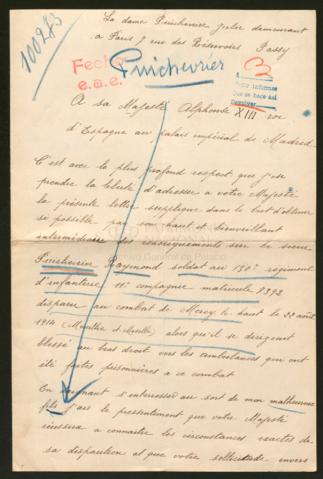 100283
La dame Puichevrier Julie demeurant
à Paris 7 rue des Réservoirs Passy
Fecho
e.a.e.
Puichevrier
A sa Majesté Alphonse XIII roi
d'Espagne au palais impérial de Madrid
C'est avec le plus profond respect que j'ose
prendre la liberté d'adresser a votre Majesté
la présente lettre supplique dans le but d'obtenir
si possible par son haut et bienveillant
intermédiaire des renseignements sur le sieur
Puichevrier Raymond soldat au 130e regiment
d'infanterie 11e compagnie matricule 8392
disparu au combat de Mercy le haut le 22 août
1914 (Meurthe et Moselle) alors qu'il se dirigeait
blessé au bras droit vers les ambulances qui ont
été faites prisonnières a ce combat
En s'interessant au sort de mon malheureux
fils j'ose le pressentiment que votre Majesté
réussira a connaitre les circonstances exactes de
sa disparition et que votre sollicitude envers